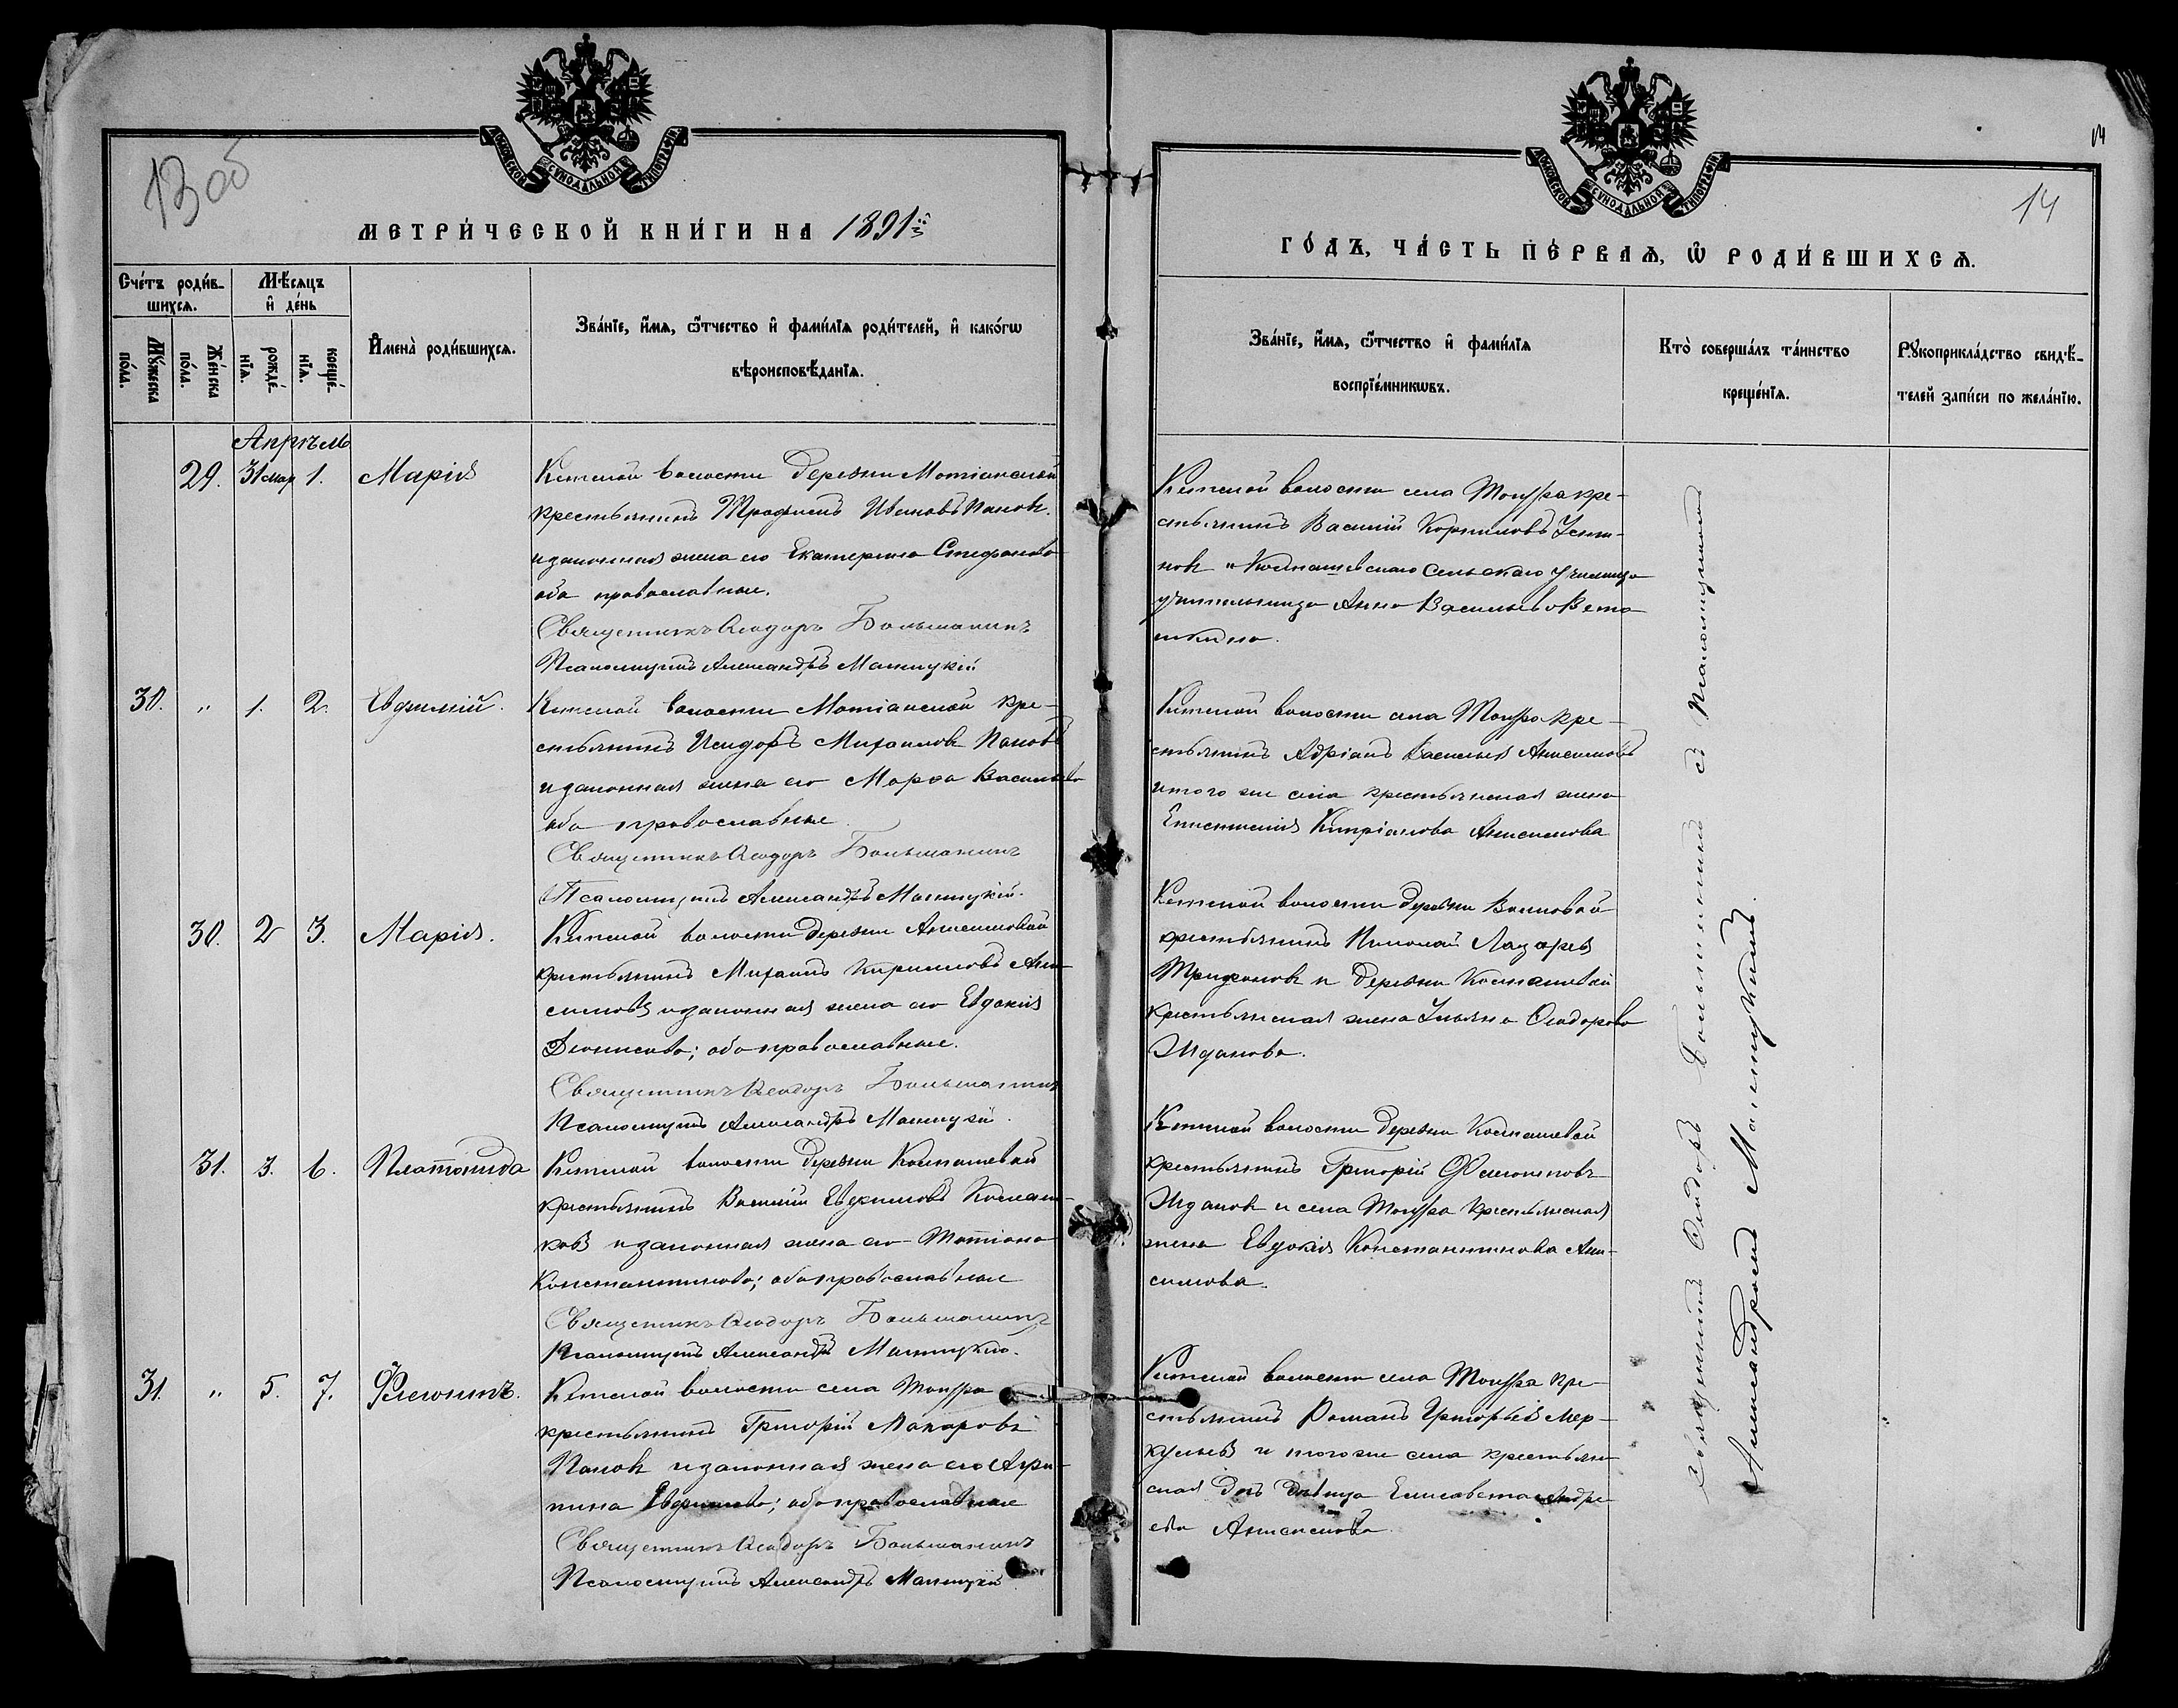 13 об
14
14
МОСКОВСКОЙ СѴНОДАЛЬНОЙ ТИПОГРАФІИ
МЕТРИ́ЧЕСКОЙ КНИ́ГИ НА 1891й
Сче́тъ роди́в-
шихся.
Мѣ́сяцъ
и҆ де́нь
Му́жеска
по́ла.
Же́нска
по́ла.
рожде́-
нїя.
креще́-
нїя.
И҆мена̀ роди́вшихся.
Зва́нїе, и҆́мя, ѻ҆́тчество и҆ фами́лїя роди́телей, и҆ како́гѡ
вѣроисповѣ́данїя.
Апрѣль
29. 31 мар 1. Марія
Кетской волости деревни Мотіанской
крестьянинъ Трофимъ Ивановъ Пановъ
и законная жена его Екатерина Стефанова
оба православные.
Священникъ Ѳеодоръ Большанинъ
Псаломщикъ Александръ Малицкій
30. " 1. 2. Евфимій.
Кетской волости Мотіанской кре-
стьянинъ Исидоръ Михаиловъ Пановъ
и законная жена его Марѳа Васильева
оба православные
Священникъ Ѳеодоръ Большанинъ
Псаломщикъ Александръ Малицкій.
30. 2 3. Марія.
Кетской волости деревни Анисимовой
крестьянинъ Михаилъ Кириловъ Ани-
симовъ и законная жена его Евдокія
Діонисова; оба православные.
Священникъ Ѳеодоръ Большанинъ
Псаломщикъ Александръ Малицкій.
31. 3. 6. Платонида
Кетской волости деревни Колпашевой
крестьянинъ Василій Евфимовъ
и законная жена его Татіана
Константинова; оба православные
Священникъ Ѳеодоръ Большанинъ
Псаломщикъ Александръ Малицкій.
31. " 5. 7. Флегонтъ.
Кетской волости села Тогура
крестьянинъ Григорій Макаровъ
Пановъ и законная жена его Агри-
пина Евфимова; оба православные
Священникъ Ѳеодоръ Большанинъ
Псаломщикъ Александръ Малицкій
МОСКОВСКОЙ СѴНОДАЛЬНОЙ ТИПОГРАФІИ
ГО́ДЪ, ЧА́СТЬ ПЕ́РВАЯ, Ѡ҆ РОДИ́ВШИХСЯ.
Зва́нїе, и҆́мя, ѻ҆́тчество и҆ фами́лїя
воспрїе́мникѡвъ.
Кто̀ соверша́лъ та́инство
креще́нїя.
Рꙋкоприкла́дство свидѣ́-
телей за́писи по жела́нїю.
Кетской волости села Тогура кре-
стьянинъ Василій Корниловъ Усти-
новъ и Колпашевскаго сельскаго училища
учительница Анна Васильева
Кетской волости села Тогура кре-
стьянинъ Адріанъ Васильевъ Анисимовъ
и того же села крестьянская жена
Епистимія Кипріанова Анисимова
Кетской волости деревни Волковой
крестьянинъ Николай Лазаревъ
Трифоновъ и деревни Колпашевой
крестьянская жена Ульяна Ѳеодорова
Жданова.
Кетской волости деревни Колпашевой
крестьянинъ Григорій Флегонтовъ
Ждановъ и села Тогура крестьянская
жена Евдокія Константинова Ани-
симова.
Кетской волости села Тогура кре-
стьянинъ Романъ Григорьевъ Мер-
курьевъ и того же села крестьян-
ская дочь дѣвица Елисавета Андре-
ева Анисимова.
Священникъ Ѳеодоръ Большанинъ съ Псаломщикомъ
Александромъ Малицкимъ.